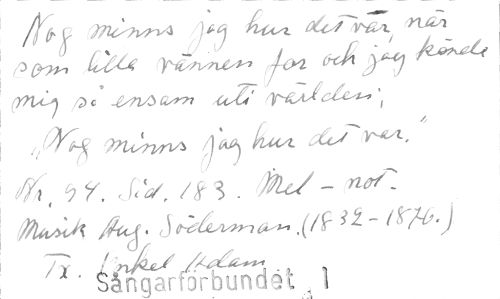 Nog minns jag hur det var, när
som lilla vännen for och jag kände
mig så ensam uti världen;
"Nog minns jag hur det var."
Nr. 94. Sid. 183. Mel - not.
Musik Aug. Söderman. (1832-1876.)
Tx. Onkel Adam
Sångarförbundet I